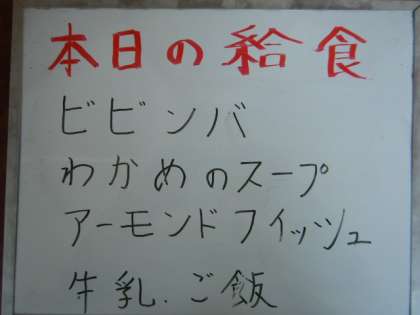 本日の給食
ビビンバ
わかめのスープ
アーモンドフィッシュ
牛乳.ご飯